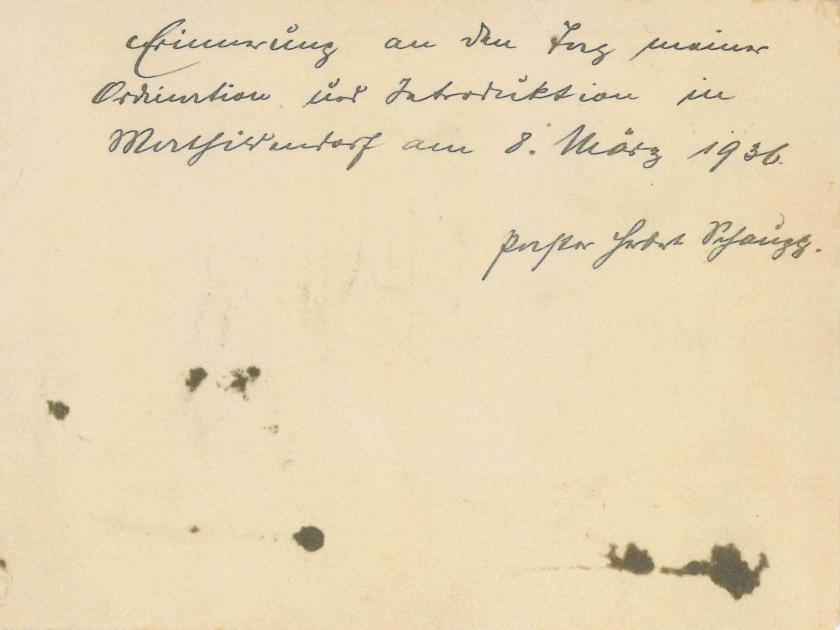 Erinnerung an den Tag meiner
Ordination und Introduktion in
Mathildendorf am 8. März 1936.
Pastor Herbert Schaupp.